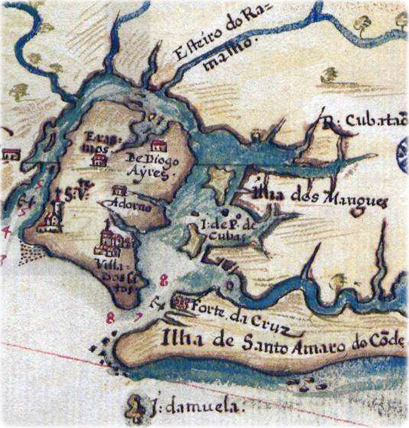 Esteiro do Ra-
malho.
R: Cubatão
Eras-
mos
De Diogo
Ayres.
Ilha dos Mangues
S. Vte
Adorno
I: de P.º de
Cubas
Villa
8
Forte da Cruz
8
7
Ilha de Santo Amaro do Cõde
I: damuela.